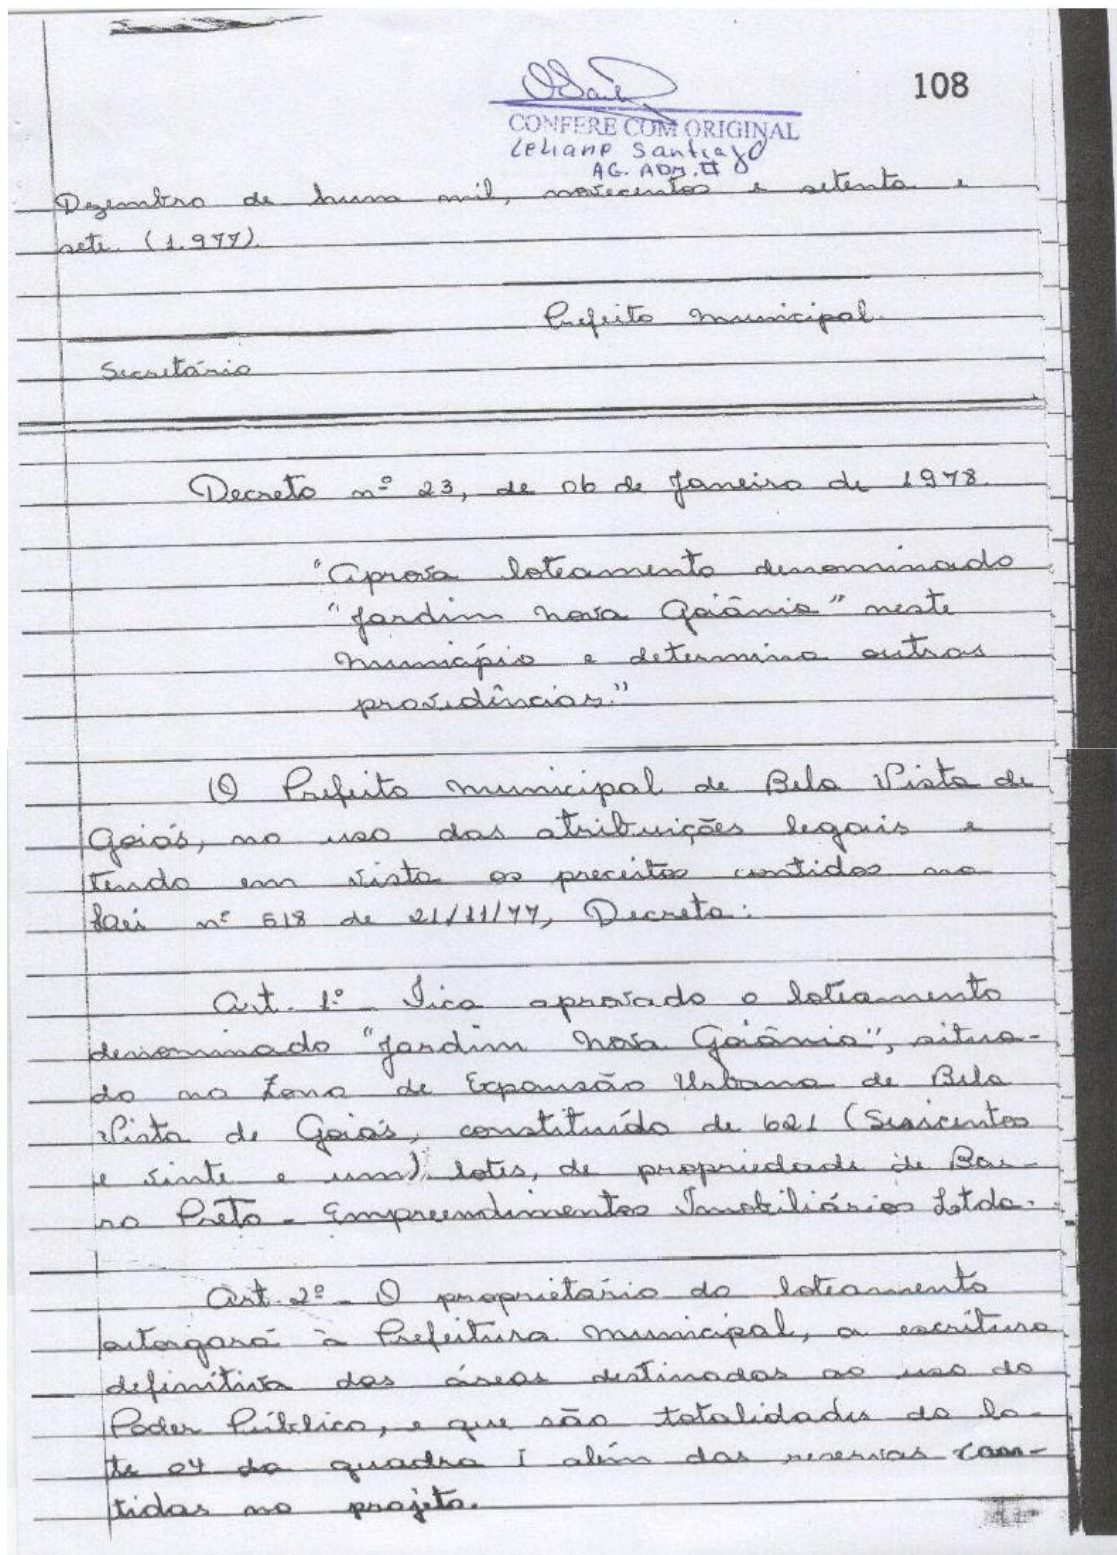 108
CONFERE COM ORIGINAL
Leliane Santiago
AG. ADM. II
Dezembro de hum mil, novecentos e setenta e
sete. (1.977).
Prefeito Municipal.
Secretário
Decreto nº 23, de 06 de Janeiro de 1978.
"Aprova loteamento denominado
"Jardim Nova Goiânia" neste
Município e determina outras
providências."
O Prefeito Municipal de Bela Vista de
Goiás, no uso das atribuições legais e
tendo em vista os preceitos contidos na
Lei nº 518 de 21/11/77, Decreta:
Art. 1º - Fica aprovado o loteamento
denominado "Jardim Nova Goiânia", situa-
do na Zona de Expansão Urbana de Bela
Vista de Goiás, constituído de 621 (Seiscentos
e vinte e um) lotes, de propriedade de Bar-
ro Preto - Empreendimentos Imobiliários Ltda.
Art. 2º - O proprietário do loteamento
outorgará à Prefeitura Municipal, a escritura
definitiva das áreas destinadas ao uso do
Poder Público, e que são totalidades do lo-
te 04 da quadra I além das reservas con-
tidas no projeto.